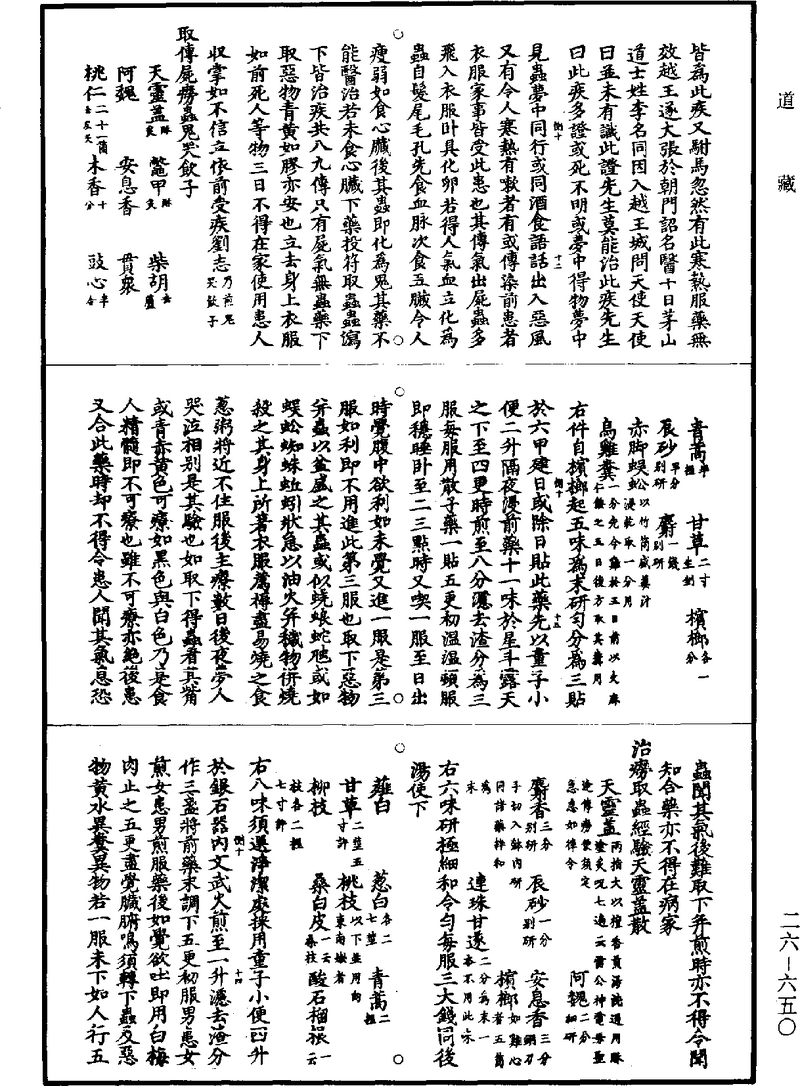 道藏
皆為此疾又駙馬忽然有此寒熱服藥無
效越王遂大張於朝門詔名醫十日茅山
道士姓李名同因入越王城問天使天使
曰並未有識此證先生莫能治此疾先生
曰此疾多證或死不明或夢中得物夢中
見蟲夢中同行或同酒食語話出入惡風
又有令人寒熱有嗽者有或傳染前患者
衣服家事皆受此患也其傳氣出屍蟲多
飛入衣服臥具化卵若得人氣血立化為
蟲自髮尾毛孔先食血脉次食五臟令人
瘦弱如食心臟後其蟲即化為鬼其藥不
能醫治若未食心臟下藥投符取蟲蟲瀉
下皆治疾共八九傳只有屍氣無蟲藥下
取惡物青黃如膠亦安也立去身上衣服
如前死人等物三日不得在家使用患人
収掌如不信立依前受疾劉志乃前鬼哭飲子
取傳屍癆蟲鬼哭飲子
天靈蓋酥炙 鼈甲酥炙 柴胡去蘆
阿魏 安息香 貫衆
桃仁二十一箇去皮尖 木香十分 豉心半合
青蒿半握 甘草二寸生剉 檳榔各一分
辰砂半分別研 麝一錢別研
赤脚蜈蚣以竹筒盛薑汁浸乾取一分用
烏雞糞一分先令雞於五日前以火麻仁餧之五日後方取其糞用
右件自檳榔起五味為末研勻分為三貼
於六甲建日或除日貼此藥先以童子小
便二升隔夜浸前藥十一味於星斗露天
之下至四更時煎至八分濾去渣分為三
服每服用散子藥一貼五更初溫溫頓服
即穩睡臥至二三點時又喫一服至日出
時覺腹中欲利如未覺又進一服是第三
服如利即不用進此第三服也取下惡物
并蟲以盆盛之其蟲或似蜣蜋蛇虺或如
蜈蚣蜘蛛蚯蚓狀急以油火并穢物併燒
殺之其身上所著衣服薦褥盡易燒之食
葱粥將近不住服後主療數日後夜夢人
哭泣相別是其驗也如取下得蟲者其觜
或青赤黃色可療如黑色與白色乃是食
人精髓即不可療也雖不可療亦絕後患
又合此藥時却不得令患人聞其氣息恐
蟲聞其氣後難取下并煎時亦不得令聞
知合藥亦不得在病家
治癆取蟲經驗天靈蓋散
天靈蓋兩指大以檀香煎湯洗過用酥塗炙咒七遍云雷公神電母聖逢傳癆便須定急急如律令 阿魏二分細研
麝香三分別研 辰砂一分別研 安息香三分銅刀子切入鉢內研同諸藥拌和為末
連珠甘遂二分為末一本不用此味 檳榔如雞心者五箇為末
右六味研極細和令勻每服三大錢同後
湯使下
薤白 葱白各二七莖 青蒿二握
甘草二莖五寸許 桃枝以下並用向東南嫩者
柳枝 桑白皮一云桑枝 酸石榴根一云枝各二握七寸許
右八味須選淨潔處採用童子小便四升
於銀石器內文武火煎至一升濾去渣分
作三盞將前藥末調下五更初服男患女
煎女患男煎服藥後如覺欲吐即用白梅
肉止之五更盡覺臟腑鳴須轉下蟲及惡
物黃水異糞異物若一服未下如人行五
二六—六五〇